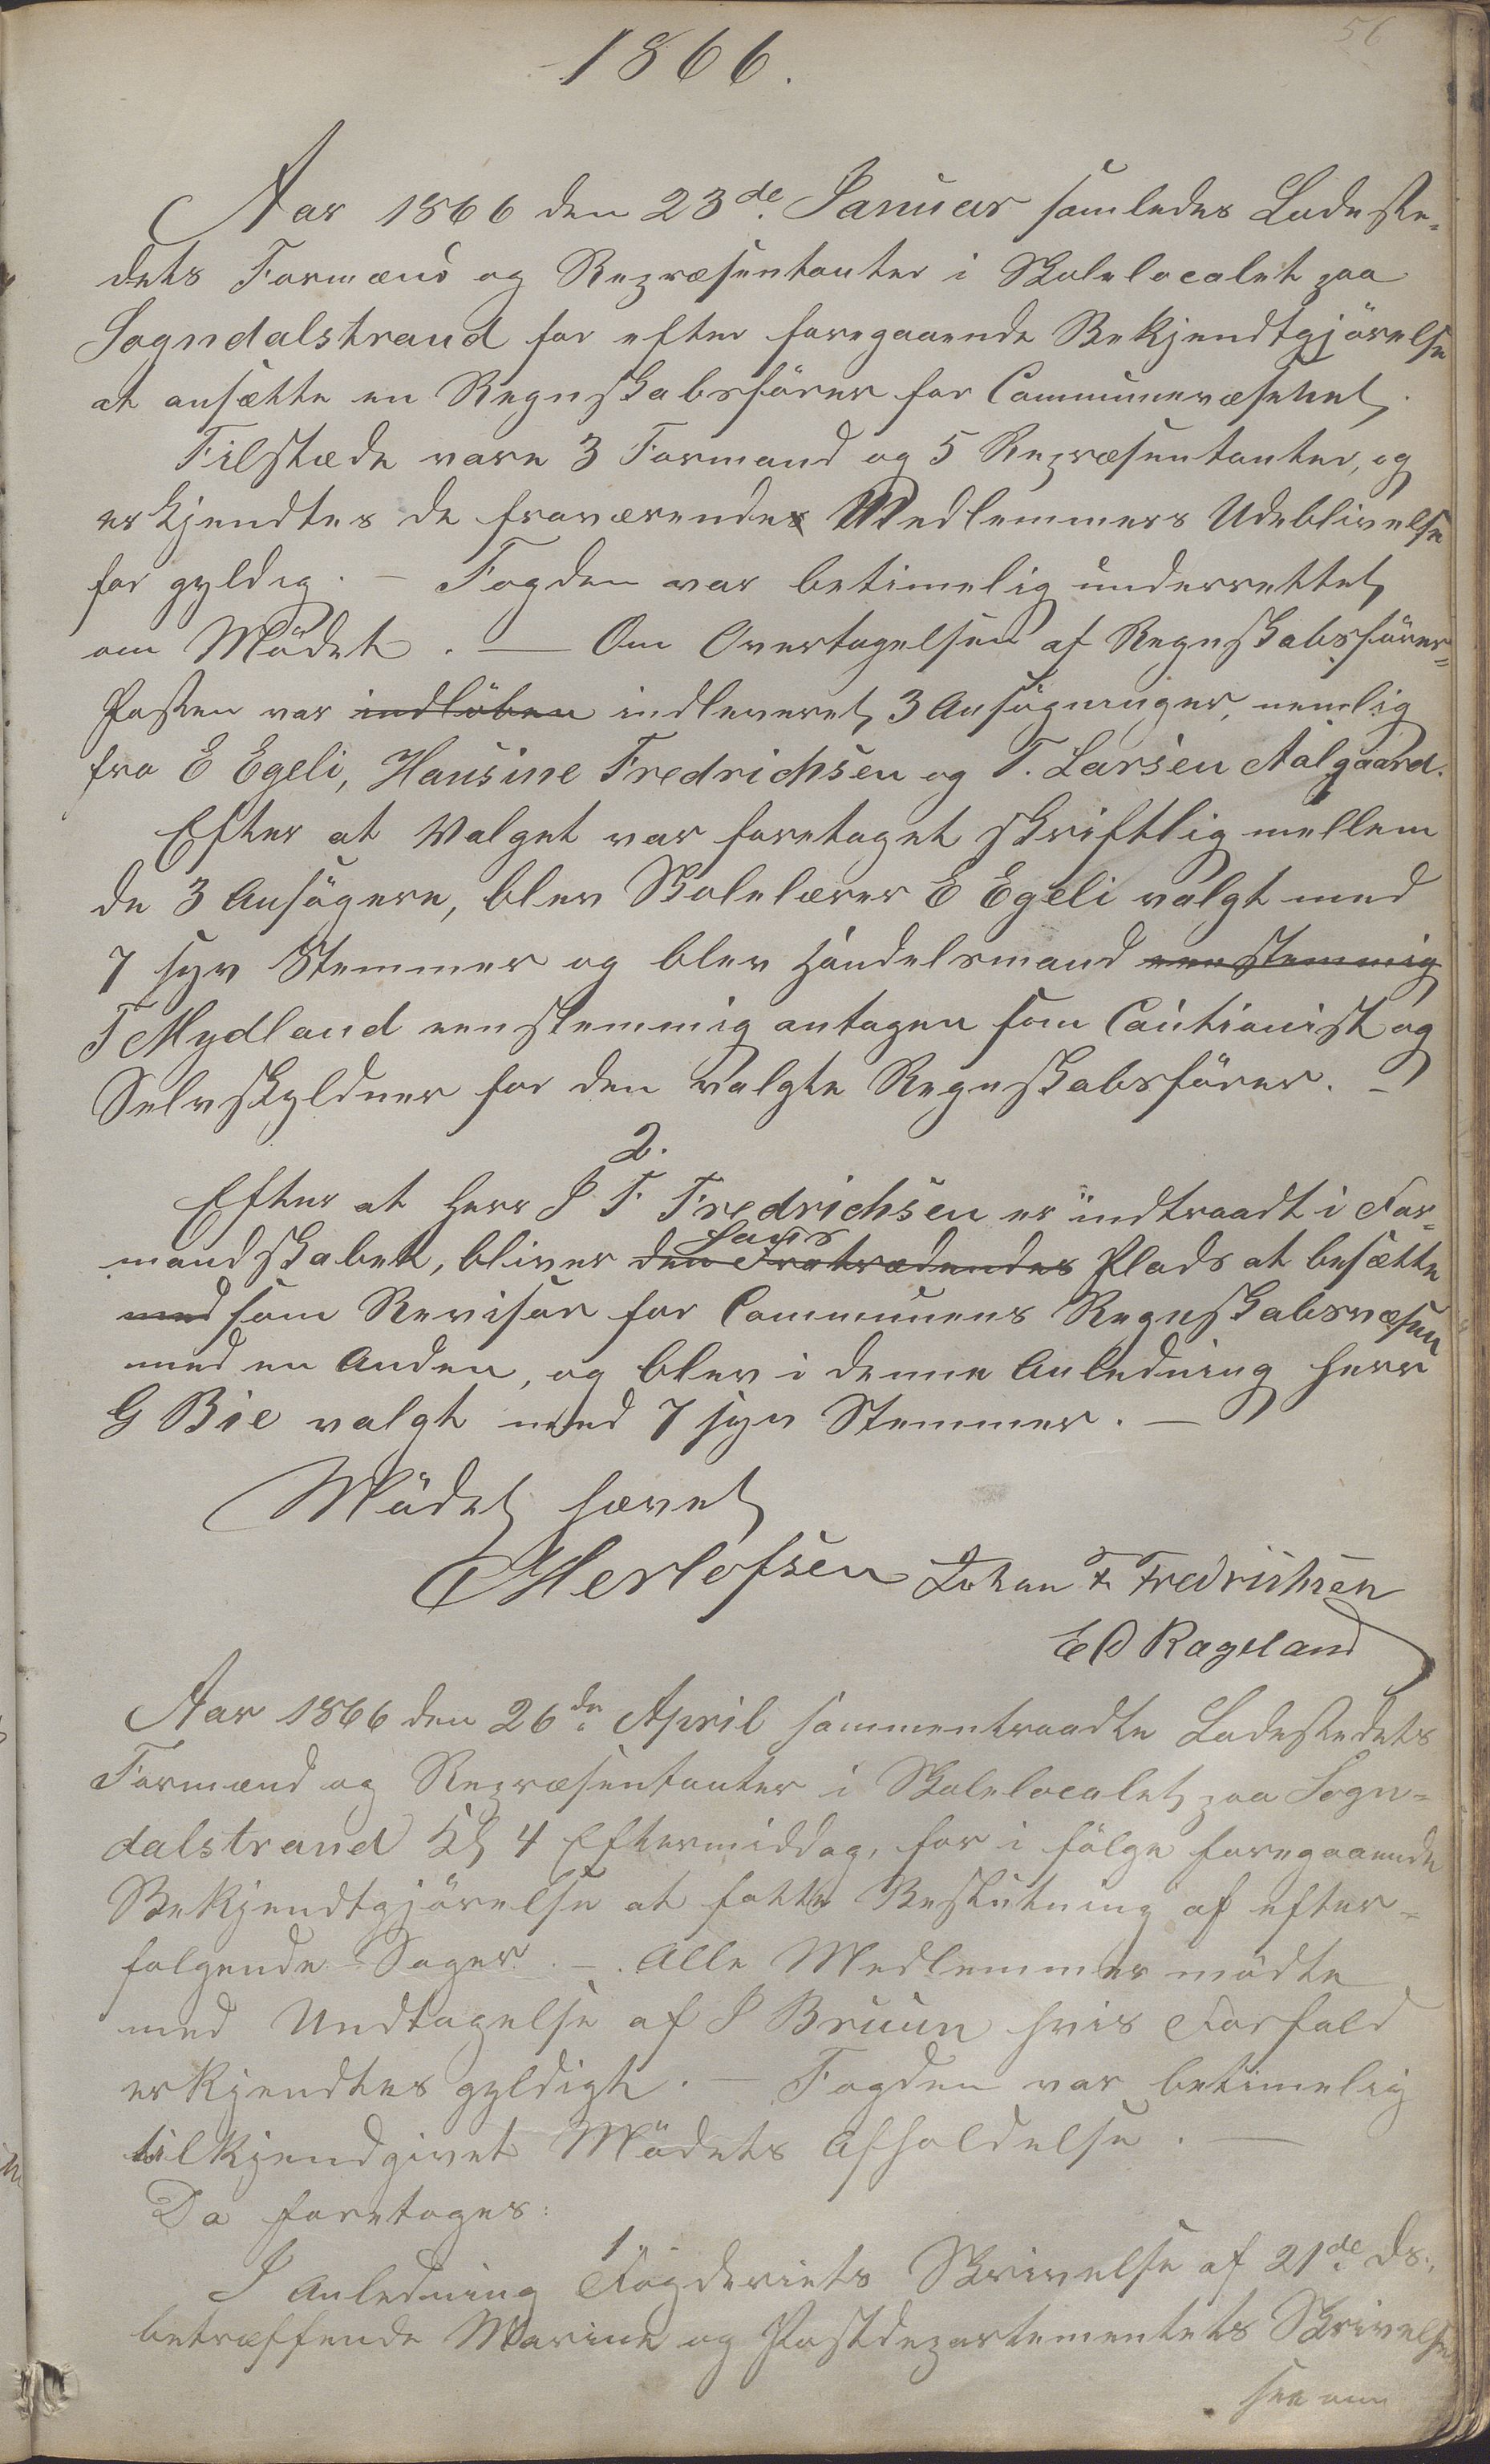 56
1866.
Aar 1866 den 23de Januar samledes Ladeste-
dets Formænd og Repræsentanter i Skolelocalet paa
Sogndalstrand for efter foregaaende Bekjendtgjörelse
at ansætte en Regnskabsförer for Communevæsenet.
Tilstæde vare 3 Formænd og 5 Repræsentanter, og
erkjendtes de fraværende Medlemmers Udeblivelse
for gyldig. — Fogden var betimelig underrettet
om Mödet. — Om Overtagelsen af Regnskabsförer-
Posten var indlöben indleveret 3 Ansögninger, nemlig
fra E Egeli, Hansine Fredrichsen og T. Larsen Aalgaard.
Efter at Valget var foretaget skriftlig mellem
de 3 Ansögere, blev Skolelærer E Egeli valgt med
7 syv Stemmer og blev Handelsmand eenstemmig
T Mydland eenstemmig antagen som Cautionist og
Selvskyldner for den valgte Regnskabsförer. —
2.
Efter at Herr J F Fredrichsen er indtraadt i For-
mandskabet, bliver den Fratrædendes Hans Plads at besætte
med som Revisor for Communens Regnskabsvæsen
med en Anden, og blev i denne Anledning Herr
G Bie valgt med 7 syv Stemmer. —
Mödet hævet
Herlofsen Johan F. Fredrichsen
E O Rageland
Aar 1866 den 26de April sammentraadte Ladestedets
Formænd og Repræsentanter i Skolelocalet paa Sogn-
dalstrand Kl 4 Eftermiddag, for i fölge foregaaende
Bekjendtgjörelse at fatte Beslutning af efter-
folgende Sager. — Alle Medlemmer mödte
med Undtagelse af J Bruun hvis Forfald
erkjendtes gyldigt. — Fogden var betimelig
tilkjendgivet Mödets Afholdelse. —
Da foretoges:
1.
I Anledning Fogderiets Skrivelse af 21de ds.,
betræffende Marine og Postdepartementets Skrivelse